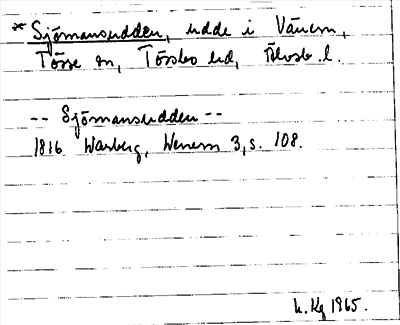 * Sjömansudden, udde i Vänern,
Tösse sn, Tössbo hd, Älvsb. l.
-- Sjömansudden --
1816 Warberg, Wenern 3, s. 108.
h. Kg 1965.